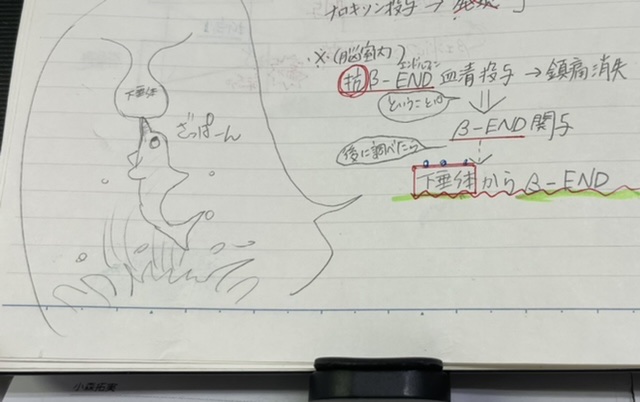 ナロキソン投与→
※(脳室内)
エンドルフィン
抗β-END血清投与→鎮痛消失
ということは
β-END関与
後に調べたら
下垂体からβ-END
下垂体
ざっぱーん
小森拓実